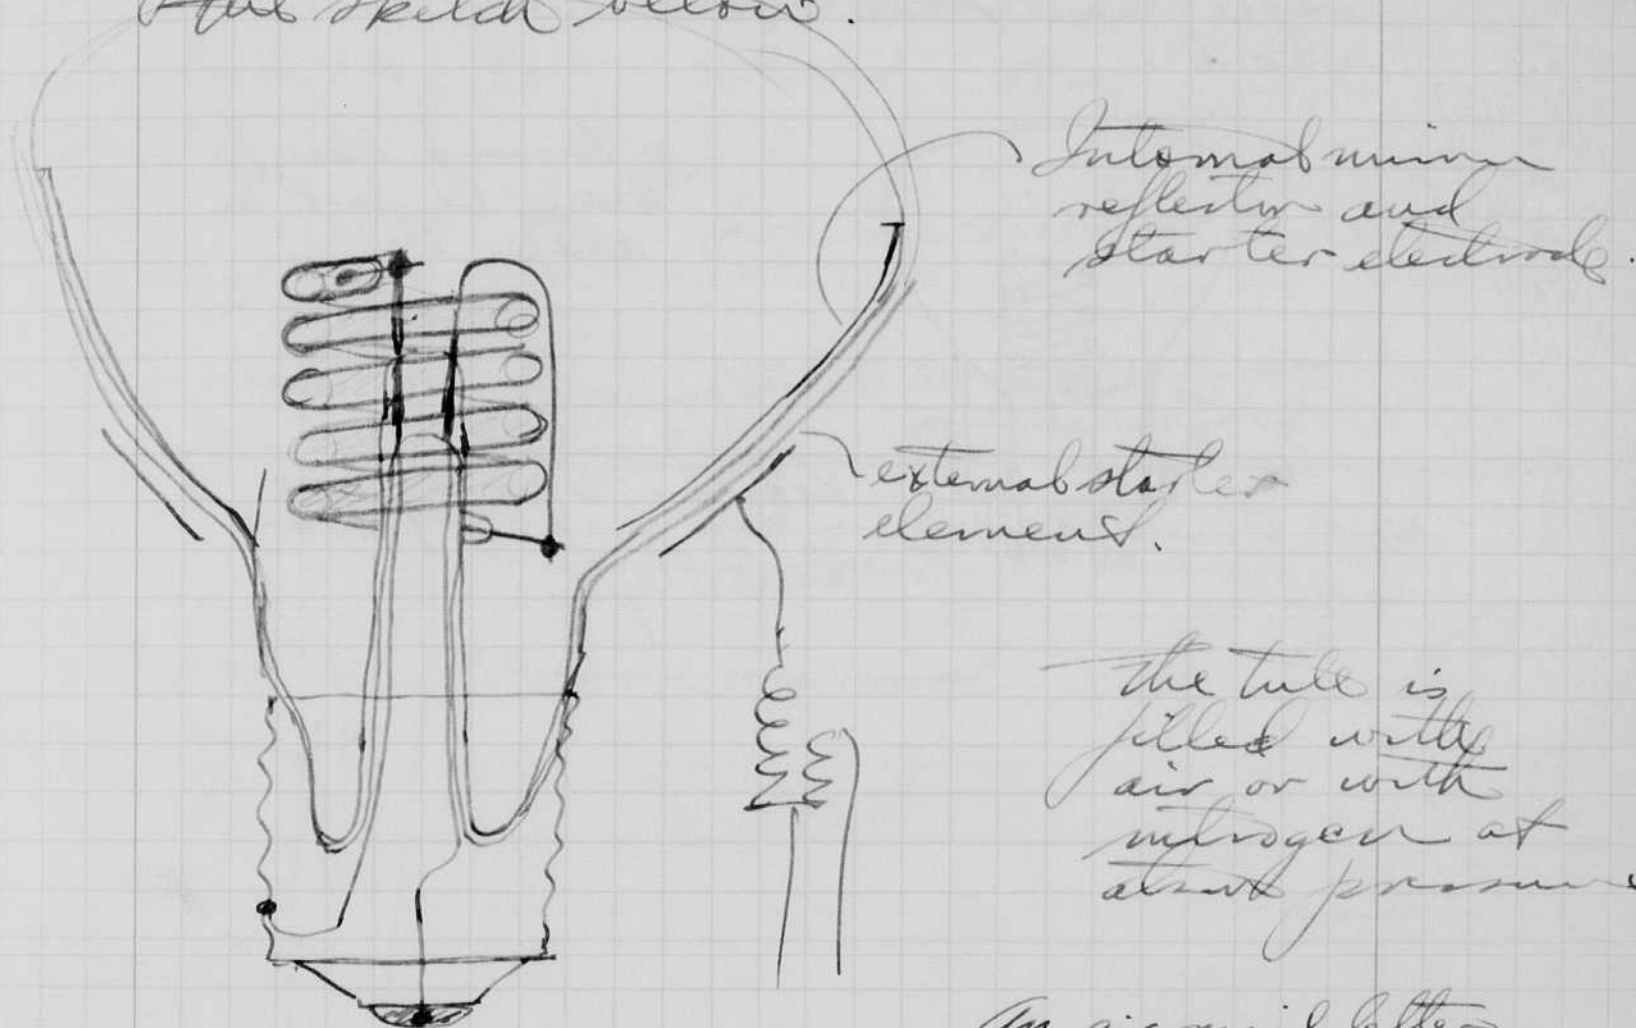 the sketch below.
Internal mirror
reflector and
starter electrode.
external starter
element.
The tube is
filled with
air or with
nitrogen at
atmos pressure
An air mail letter